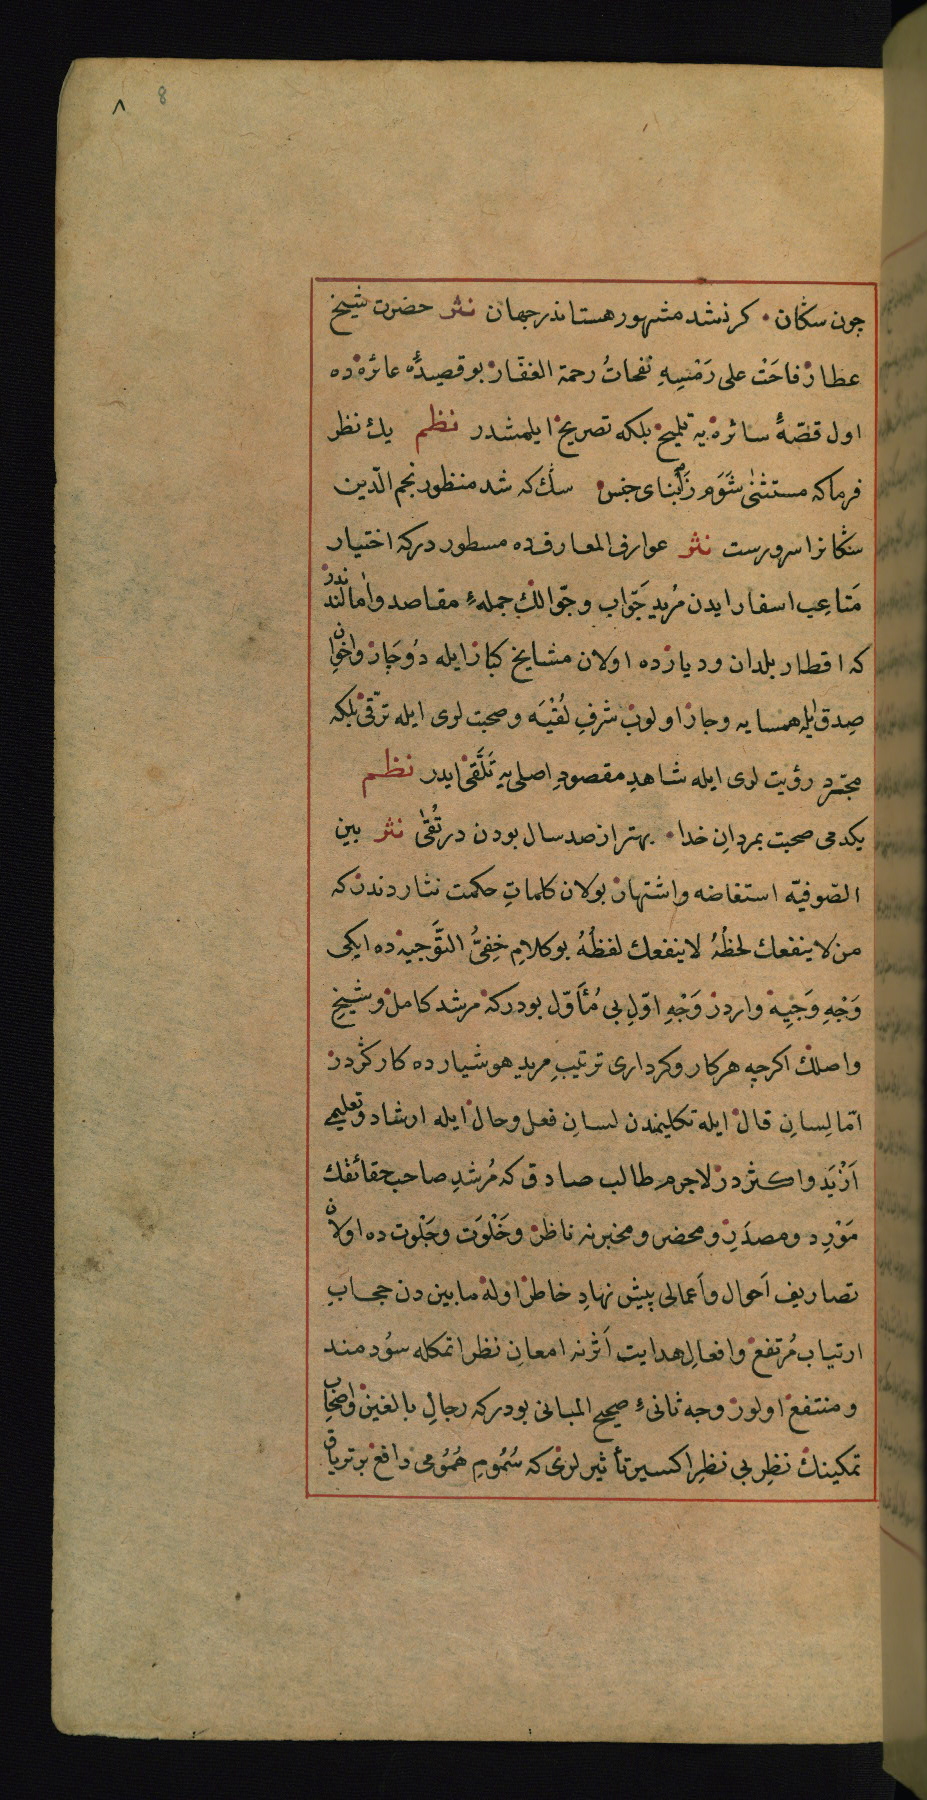 ٨ 8
چون سكان • كرنشد مشهور هستاندر جهان نثر حضرت شيخ
عطار فاحَتْ على رَمْسِهِ نفحاتُ رحمة الغفّار بو قصيدهٔ عائره ده
اول قصّهٔ سائره يه تلميح بلكه تصريح ايلمشدر نظم يك نظر
فرما كه مستثنٰى شَوَم زَابنای جنس • سك كه شد منظور نجم الدّين
سكانرا سرورست نثر عوارف المعارفده مسطور دركه اختيار
مَتاعِب اسفار ايدن مُريدِ جَوّاب وجوّالك جملهٔ مقاصد واٰمالندندر
كه اقطار بلدان و ديارده اولان مشايخ كبار ايله دُوجار واخوان
صِدق ايله همسايه وجار اولوب شرفِ لُقْيَه وصحبت لرى ايله ترقّى بلكه
مجرّد رؤيت لرى ايله شاهدِ مقصودِ اصلى يه تَلَقّى ايدر نظم
يكدمى صحبت بمردانِ خدا • بهتر از صد سال بودن در تُقٰى نثر بين
الصّوفيّه استفاضه واشتهار بولان كلماتِ حكمت نثار دندركه
من لا ينفعك لحظُهُ لا ينفعك لفظُهُ بو كلامِ خِفىّ التَّوجيه ده ايكى
وَجْهِ وَجْيِه واردر وَجْهِ اوّلِ بى مُئَاوّل بودركه مرشد كامل وشيخ
واصلك اكرچه هر كار وكردارى ترتيبِ مريد هوشيارده كاركردر
امّا لِسانِ قال ايله تكليمندن لسانِ فعل وحال ايله ارشاد وتعليمى
اَزْيَد واكثردر لاجرم طالب صادق كه مُرشدِ صاحب حقائقك
مَوْرِد ومصدَرِ ومحضر ومخبرنه ناظر وخَلْوَت وجَلْوت ده اولان
تصاريف اَحوال واَعمالى پيش نهادِ خاطر اوله مابين دن حجابِ
ارتياب مُرتفع وافعالِ هدايت اَثرنه امعانِ نظر اتمكله سوُدمند
ومنتفع اولور وجه ثانىٔ صحيح المبانى بودركه رجالِ بالغين واصحاب
تمكينك نظرِ بى نظرِ اكسير تأثير لرى كه سُمُومِ هُمُومى دافع بر ترياق